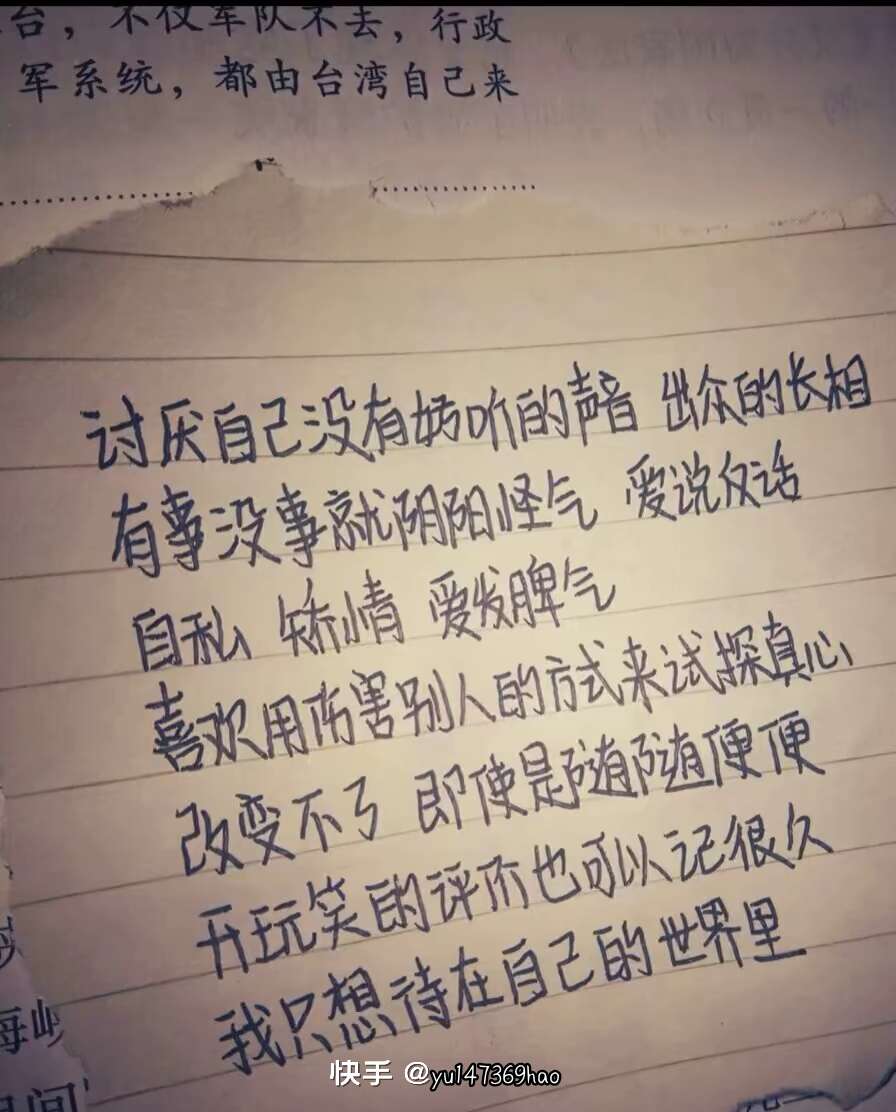 台，不仅军队不去，行政
军系统，都由台湾自己来
讨厌自己没有好听的声音 出众的长相
有事没事就阴阳怪气 爱说反话
自私 矫情 爱发脾气
喜欢用伤害别人的方式来试探真心
改变不了 即使是随随便便
开玩笑的评价也可以记很久
我只想待在自己的世界里
海峡
间
快手 @yu147369hao